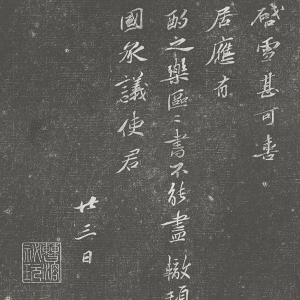 啓雪甚可喜
居應有
酌之樂區〻書不能盡轍頓
國承議使君
廿三日